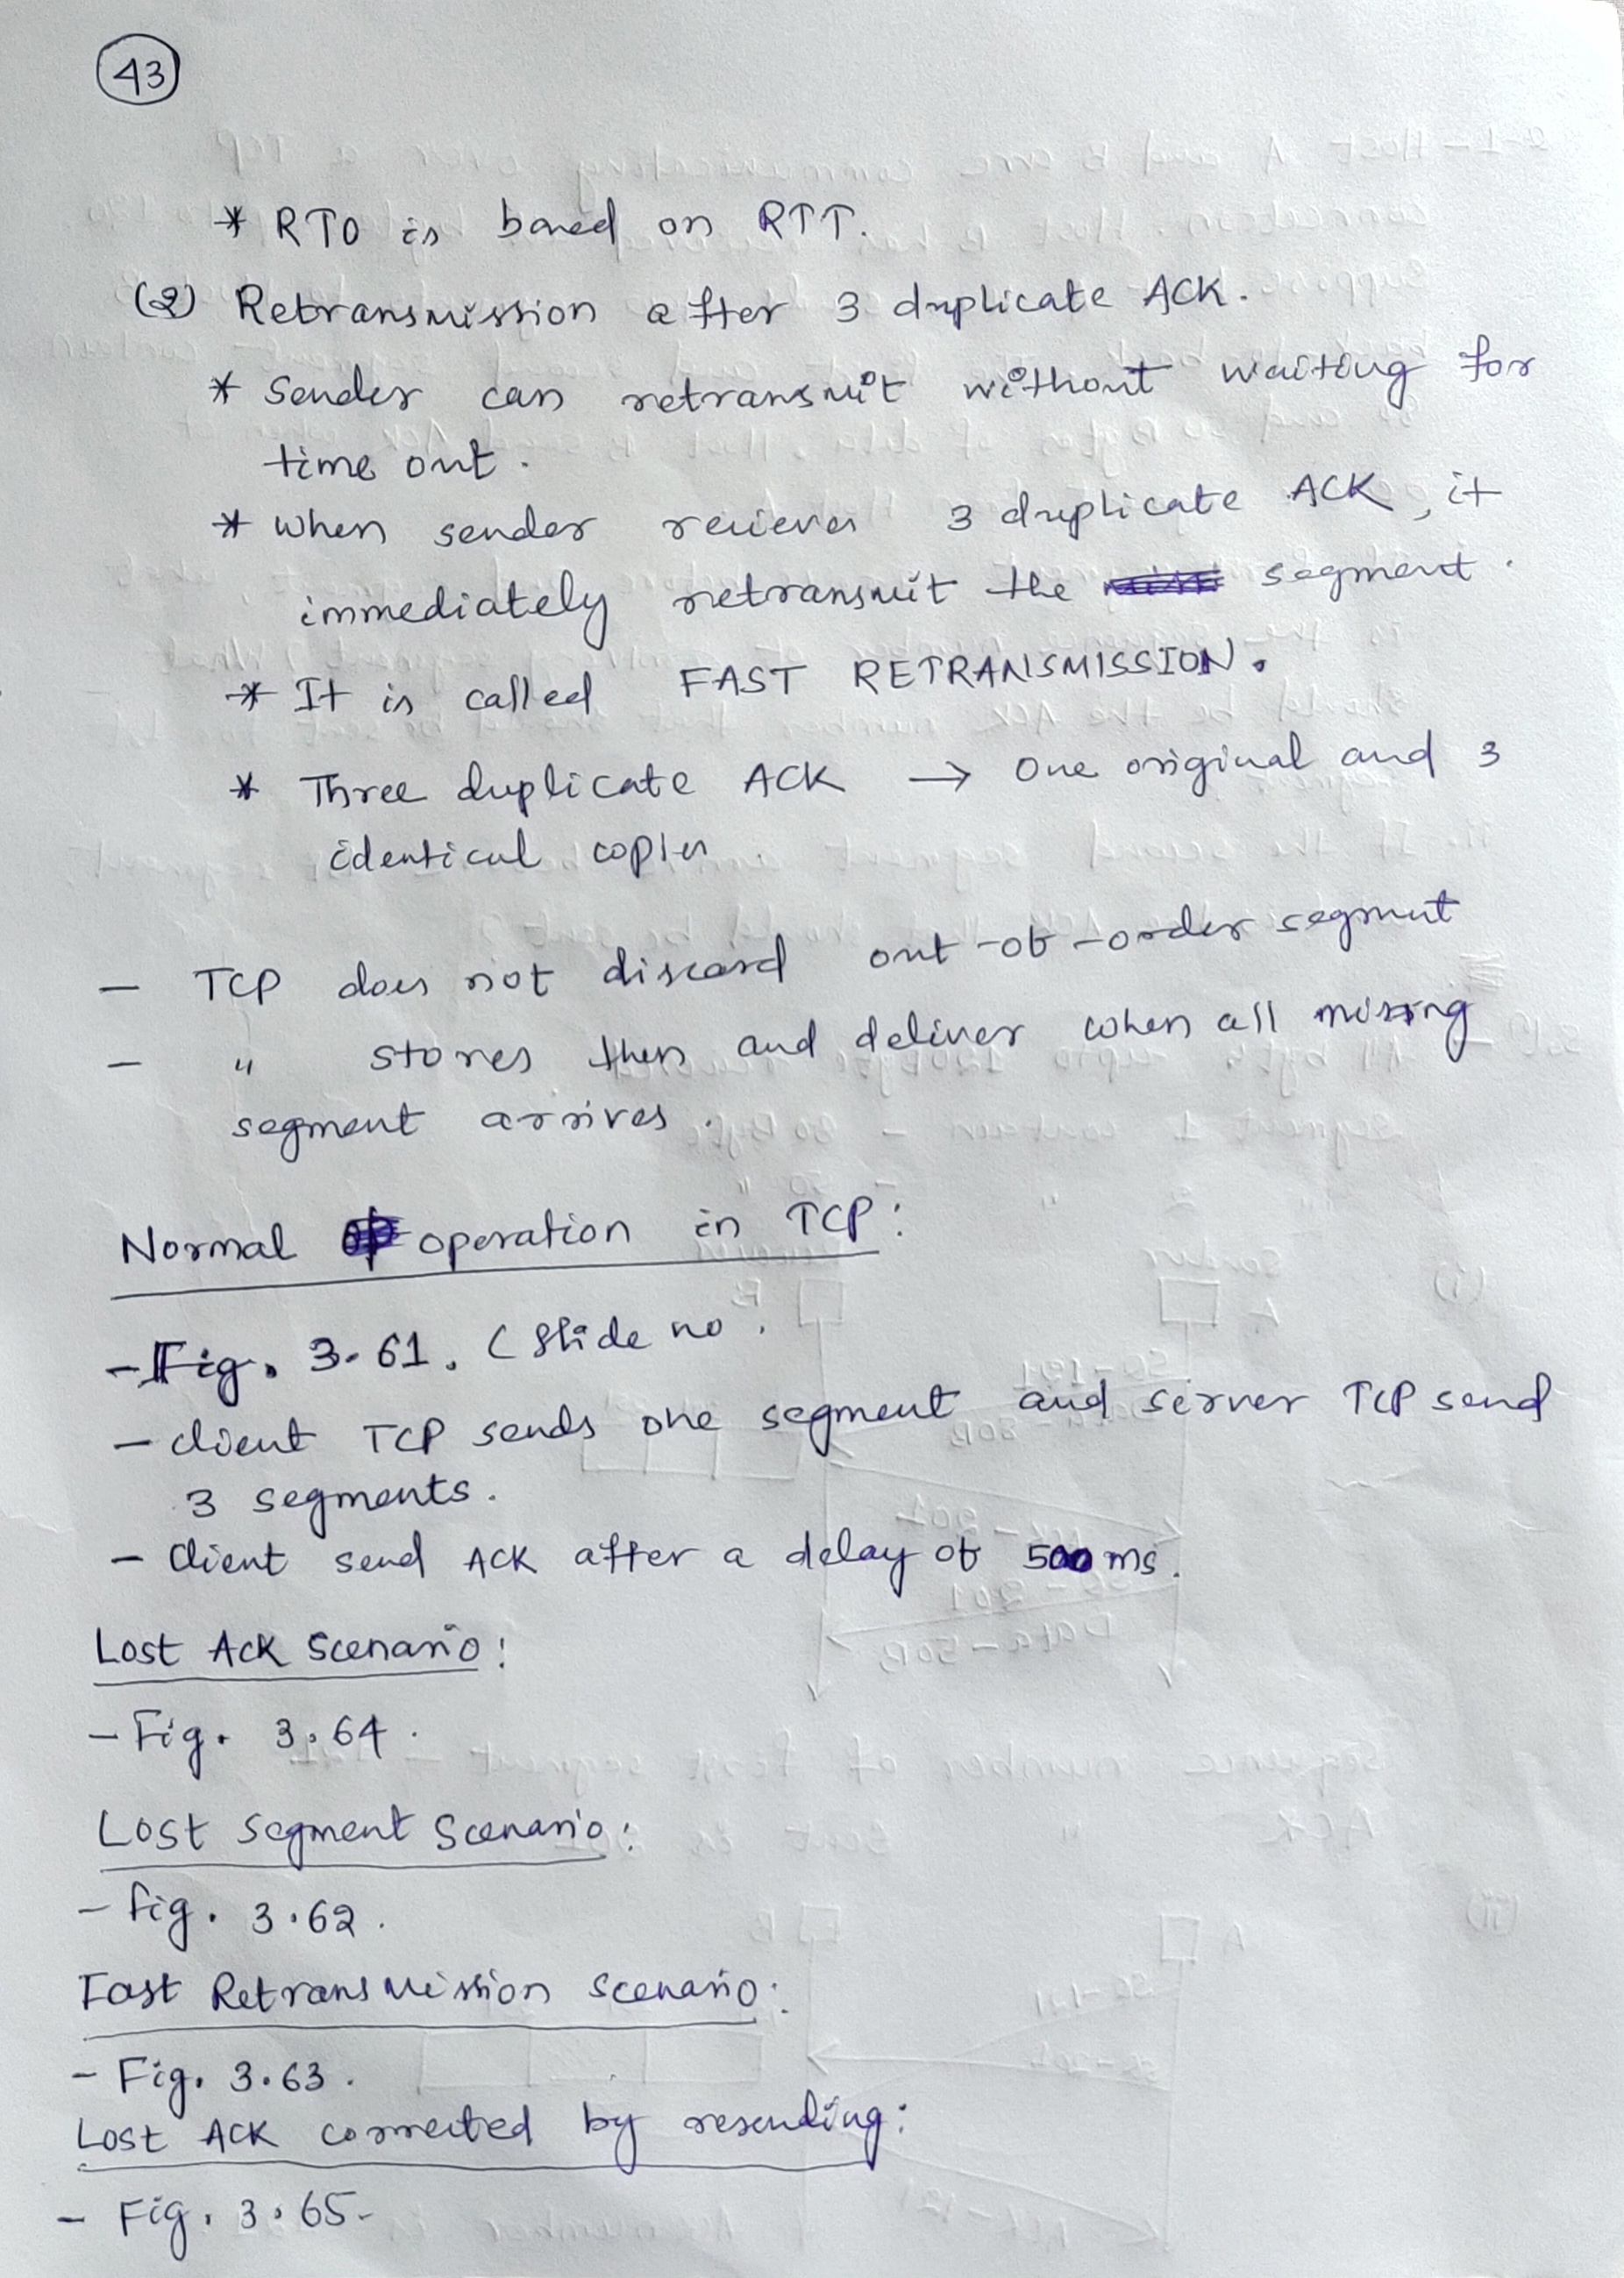 43
* RTO is based on RTT.
(2) Retransmission after 3 duplicate ACK.
* Sender can retransmit without waiting for
time out.
* When sender recieves 3 duplicate ACK, it
immediately retransmit the segment.
* It is called FAST RETRANSMISSION.
* Three duplicate ACK → One original and 3
identical copies.
- TCP does not discard out-of-order segment
- " stores then and deliver when all missing
segment arrives.
Normal operation in TCP:
- Fig. 3.61. (Slide no.
- client TCP sends one segment and server TCP send
3 segments.
- Client send ACK after a delay of 500 ms.
Lost ACK Scenario:
- Fig. 3.64.
Lost Segment Scenario:
- fig. 3.62.
Fast Retransmission Scenario:
- Fig. 3.63.
Lost ACK corrected by resending:
- Fig. 3.65.